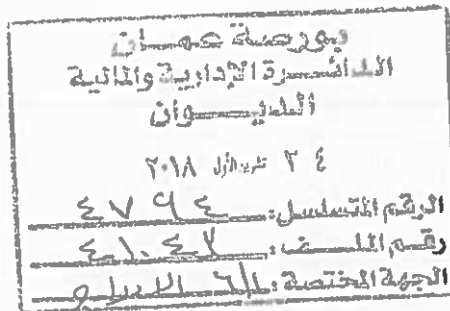 بورصة عمان
الدائرة الإدارية والمالية
الديوان
٢٤ تشرين الأول ٢٠١٨
الرقم المتسلسل: ٤٧٩٤
رقم الملف: ٤١٠٤٢
الجهة المختصة: